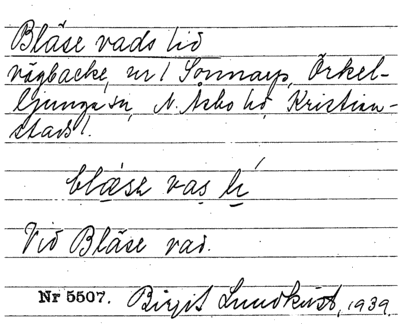 Bläse vads lid
vägbacke, nr 1 Sonnarp, Örkel-
ljunga sn, N. Åsbo hd, Kristian-
stads l.
blæse vas li
Vid Bläse vad.
Nr 5507. Birgit Lundkvist, 1939.